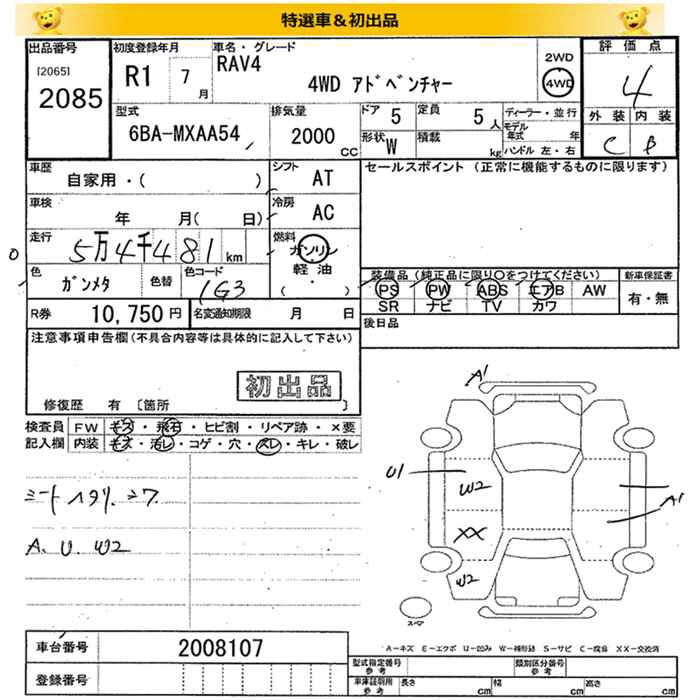 特選車＆初出品
出品番号 初度登録年月 車名・グレード 評価点
[2065] R1 7月 RAV4 2WD
2085 4WD アドベンチャー 4WD 4
型式 排気量 ドア 5 定員 5人 ディーラー・並行 外装 内装
6BA-MXAA54 2000CC 形状 W 積載 kg モデル年式 年 C B
ハンドル 左・右
車歴 シフト AT セールスポイント (正常に機能するものに限ります)
自家用・( )
車検 年 月( 日) 冷房 AC
走行 5万4千481km 燃料 ガソリン
軽油
( ・ )
色 ガンメタ 色替 色コード 1G3
装備品 (純正品に限り○をつけてください) 新車保証書
PS PW ABS エアB AW 有・無
SR ナビ TV カワ
R券 10,750円 名変通知期限 月 日 後日品
注意事項申告欄 (不具合内容等は具体的に記入して下さい)
初出品
修復歴 有 [箇所 ]
検査員 FW キズ・飛石・ヒビ割・リペア跡・×要
記入欄 内装 キズ・汚レ・コゲ・穴・スレ・キレ・破レ
A、U、W2
A1
U1
W2
A1
XX
W2
スペア
A-キズ E-エクボ U-凹み W-補修跡 S-サビ C-腐食 XX-交換済
車台番号 2008107
登録番号
型式指定番号 参考 類別区分番号 参考
車庫証明用 参考 長さ cm 幅 cm 高さ cm